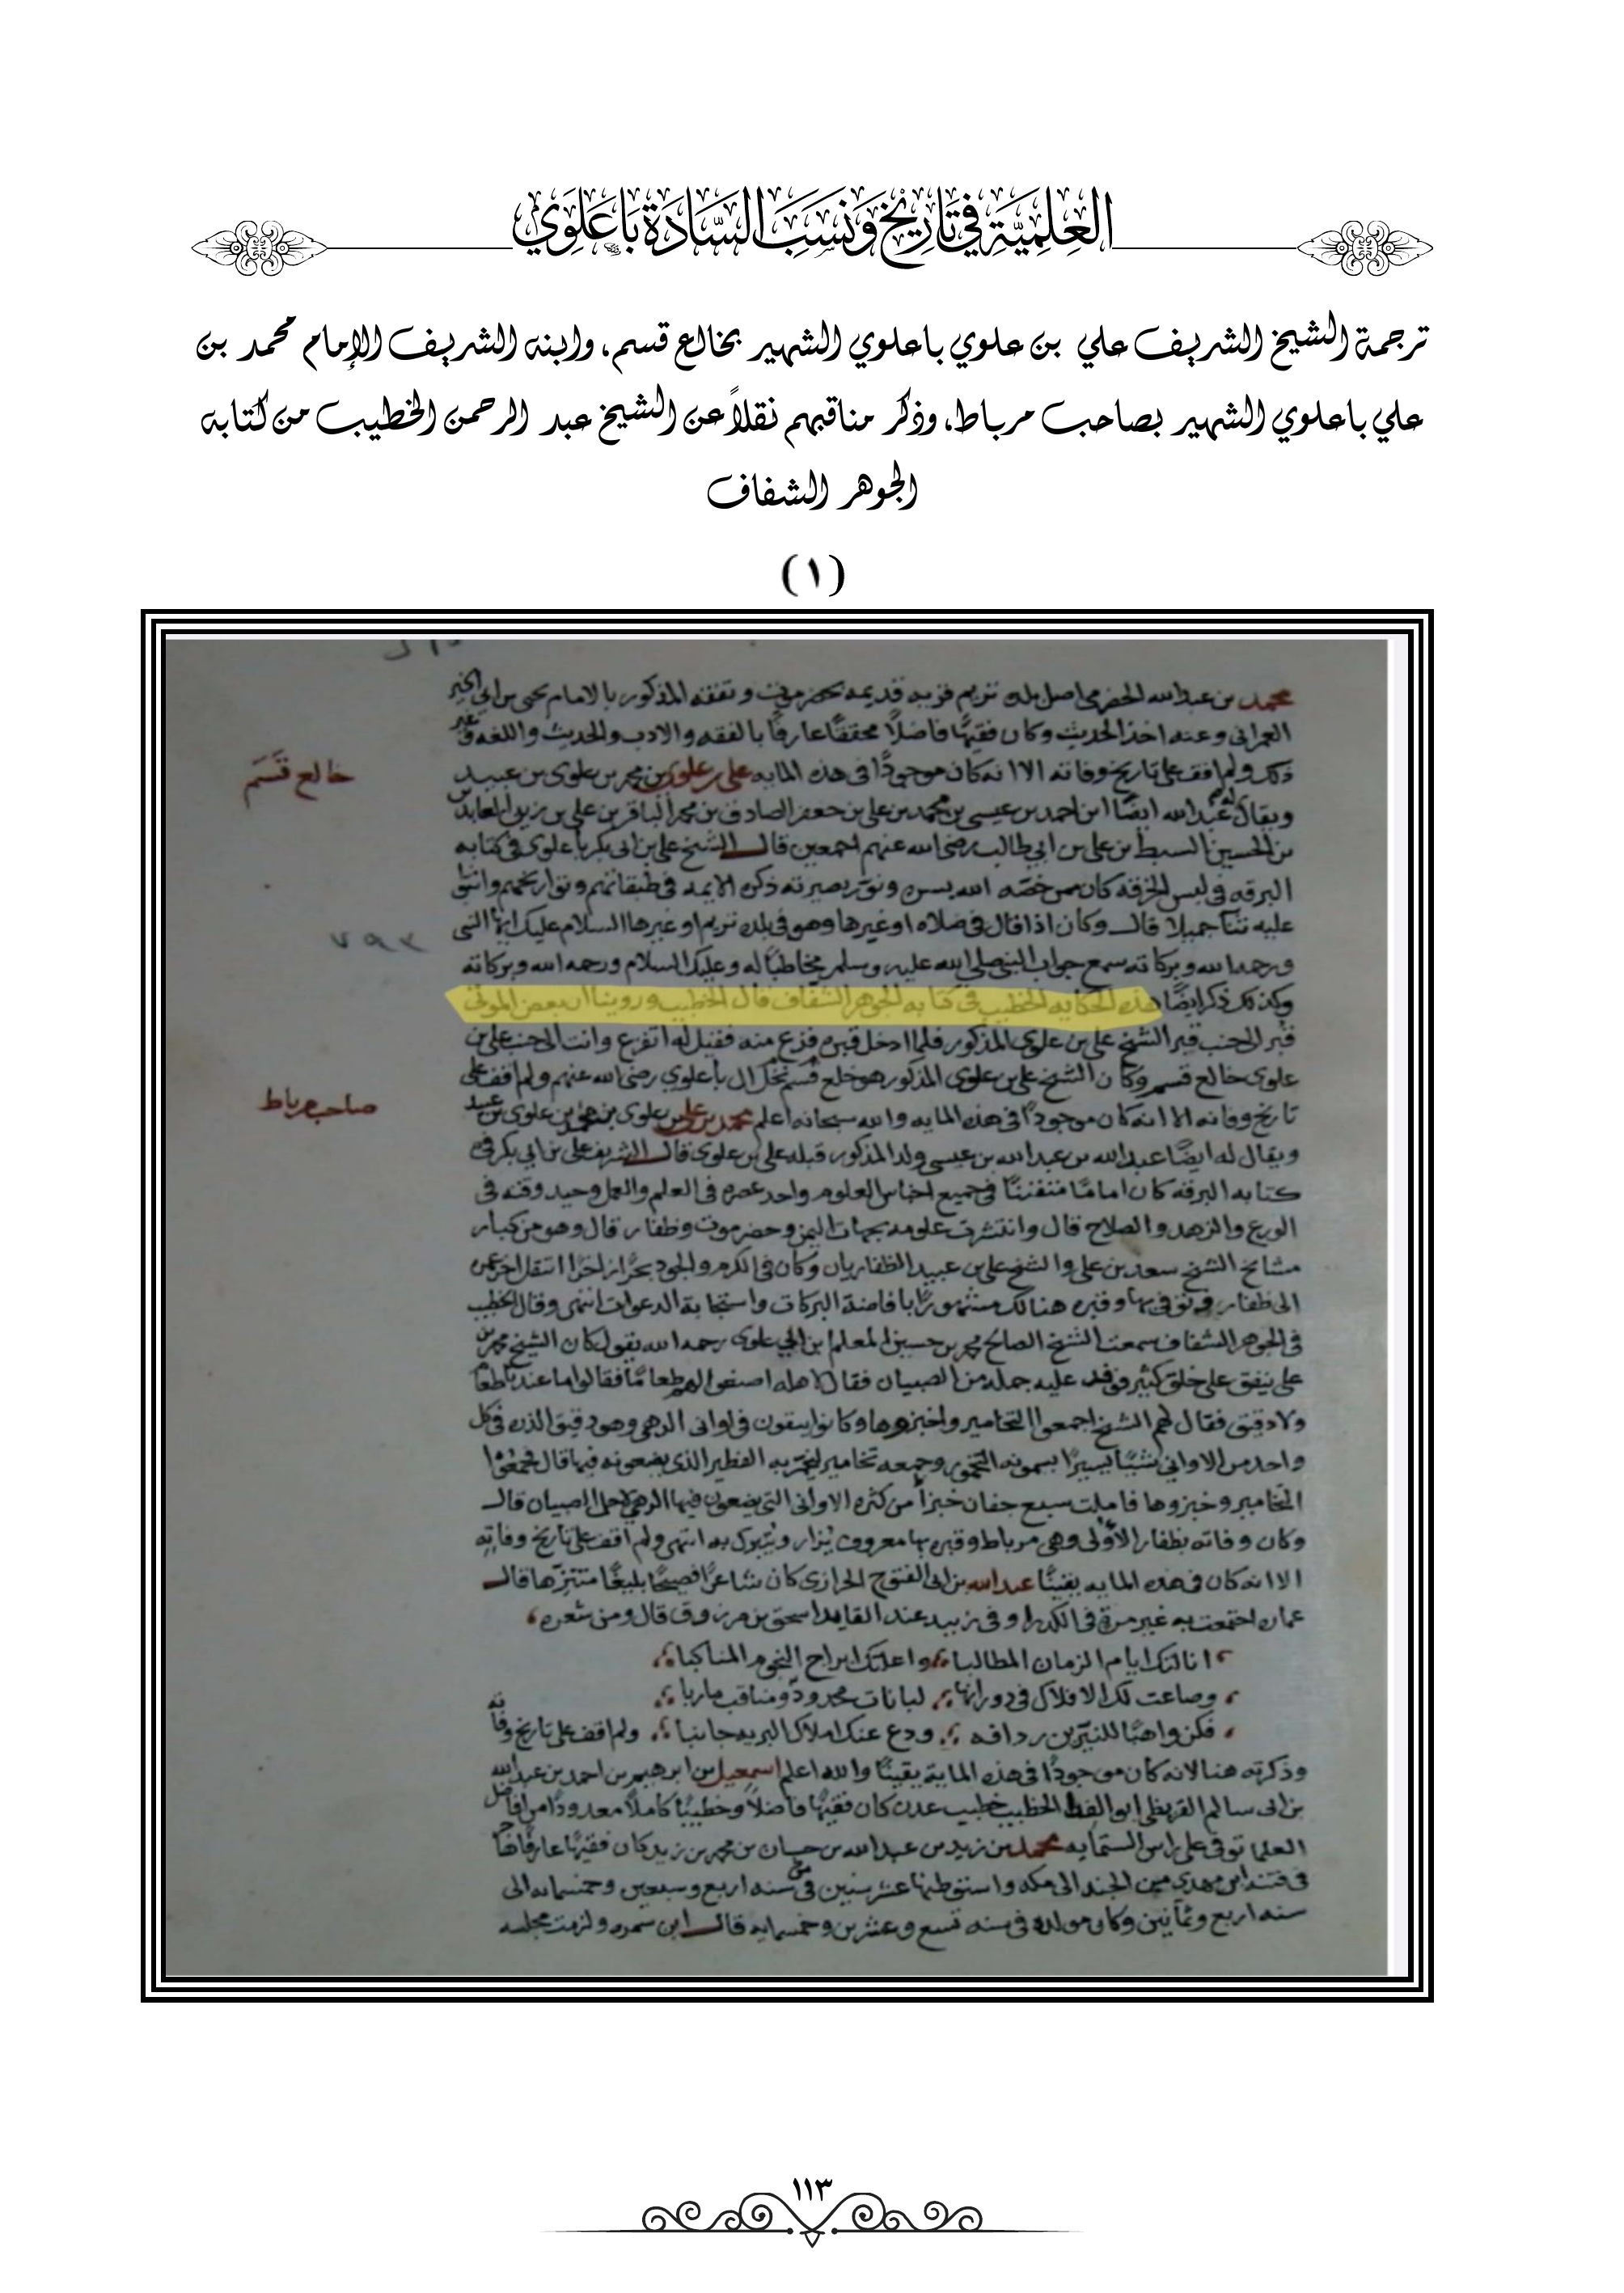 العِلمِيَّة في تَاريخ وَنَسَب السَّادَة بَاعَلَوِي
ترجمة الشيخ الشريف علي بن علوي باعلوي الشهير بخالع قسم، وابنه الشريف الإمام محمد بن
علي باعلوي الشهير بصاحب مرباط، وذكر مناقبهم نقلاً عن الشيخ عبد الرحمن الخطيب من كتابه
الجوهر الشفاف
(١)
محمد بن عبدالله الحضرمي اصل بلده تريم قريه قديمه بحضرموت وتفقه المذكور بالامام يحيى بن ابي الخير
العمراني وعنه اخذ الحديث وكان فقيهًا فاضلاً محققًا عارفًا بالفقه والادب والحديث واللغه وغير
ذلك ولم اقف على تاريخ وفاته الا انه كان موجودًا في هذه المايه علي بن علوي بن محمد بن علوي بن عبيد
خالع قَسَم
ويقال عبدالله ايضًا ابن احمد بن عيسى بن محمد بن علي بن جعفر الصادق بن محمد الباقر بن علي بن زين العابدين
بن الحسين السبط بن علي بن ابي طالب رضي الله عنهم اجمعين قال الشيخ علي بن ابي بكر باعلوي في كتابه
البرقه في لبس الخرقه كان ممن خصه الله بسره ونور بصيرته ذكره الايمه في طبقاتهم وتواريخهم واثنى
عليه ثنا جميلا قال وكان اذا قال في صلاه او غيرها وهو في بلده تريم او غيرها السلام عليك ايها النبي
٧٩٣
ورحمة الله وبركاته سمع جواب النبي صلى الله عليه وسلم مخاطبًا له وعليك السلام ورحمه الله وبركاته
وكذلك ذكر ايضًا هذه الحكايه الخطيب في كتابه الجوهر الشفاف قال الخطيب وروينا ان بعض الموتى
قبر الى جنب قبر الشيخ علي بن علوي المذكور فلما ادخل قبره فزع منه فقيل له اتفزع وانت الى جنب علي بن
علوي خالع قسم وكان الشيخ علي بن علوي المذكور هو خلع قسم نخل ال باعلوي رضي الله عنهم ولم اقف على
تاريخ وفاته الا انه كان موجودًا في هذه المايه والله سبحانه اعلم محمد بن علي بن علوي بن محمد بن علوي بن عبيد
صاحب مرباط
ويقال له ايضًا عبدالله بن عبدالله بن عيسى ولد المذكور قبله علي بن علوي قال الشريف علي بن ابي بكر في
كتابه البرقه كان امامًا متفننًا في جميع اجناس العلوم واحد عصره في العلم والعمل وحيد وقته في
الورع والزهد والصلاح قال وانتشرت علومه بجهات اليمن وحضرموت وظفار قال وهو من كبار
مشايخ الشيخ سعد بن علي والشيخ علي بن عبيد الظفاريان وكان في الكرم والجود بحرًا زاخرًا انتقل اخر عمره
الى ظفار وتوفي بها وقبره هنالك مشهورًا بافاضة البركات واستجابة الدعوات انتهى وقال الخطيب
في الجوهر الشفاف سمعت الشيخ الصالح محمد بن حسين المعلم ابن ابي علوي رحمه الله يقول كان الشيخ محمد بن
علي ينفق على خلق كثير فوفد عليه جمله من الصبيان فقال لاهله اصنعوا لهم طعامًا فقالوا ما عندنا طعام
ولا دقيق فقال لهم الشيخ اجمعوا التخامير واخبزوها وكانوا يبقون في اواني الرهي وهو دقيق الذره في كل
واحد من الاواني شيئًا يسيرًا يسمونه التخمور وجمعه تخامير ليخمر به الفطير الذي يضعونه فيها قال فجمعوا
التخامير وخبزوها فاملت سبع جفان خبزًا من كثره الاواني التي يضعون فيها الرهي لاجل الصبيان قال
وكان وفاته بظفار الاولى وهي مرباط وقبره بها معروف يزار ويتبرك به انتهى ولم اقف على تاريخ وفاته
الا انه كان في هذه المايه يقينًا عبدالله بن ابي الفتوح الحرازي كان شاعرًا فصيحًا بليغًا متنزهًا قال
عماره اجتمعت به غير مرة في الكدرا وفي زبيد عند القايد اسحق بن مرزوق قال ومن شعره
انالتك ايام الزمان المطالبا واعلتك ابراج النجوم المناكبا
وصاغت لك الافلاك في دورانها لبانات مجد ودّ ومناقب ماربا
فكن واهبًا للنيرين رداقه ودع عنك املاك البريه جانبا ولم اقف على تاريخ وفاته
وذكرته هنا لانه كان موجودًا في هذه الماية يقينًا والله اعلم اسمعيل بن ابرهيم بن احمد بن عبدالله
بن ابي سالم القريظي ابو الفضل الخطيب خطيب عدن كان فقيهًا فاضلاً وخطيبًا كاملاً معدودًا من افاضل
العلما توفي على راس الستمايه محمد بن زيد بن عبدالله بن حسان بن محمد بن زيد كان فقيهًا عارفًا
في فتنة ابن مهدي من الجند الى مكه واستوطنها عشر سنين من سنه اربع وسبعين وخمسمايه الى
سنه اربع وثمانين وكان مولده في سنه تسع وعشرين وخمسمايه قال ابن سمره ولزمت مجلسه
١١٣